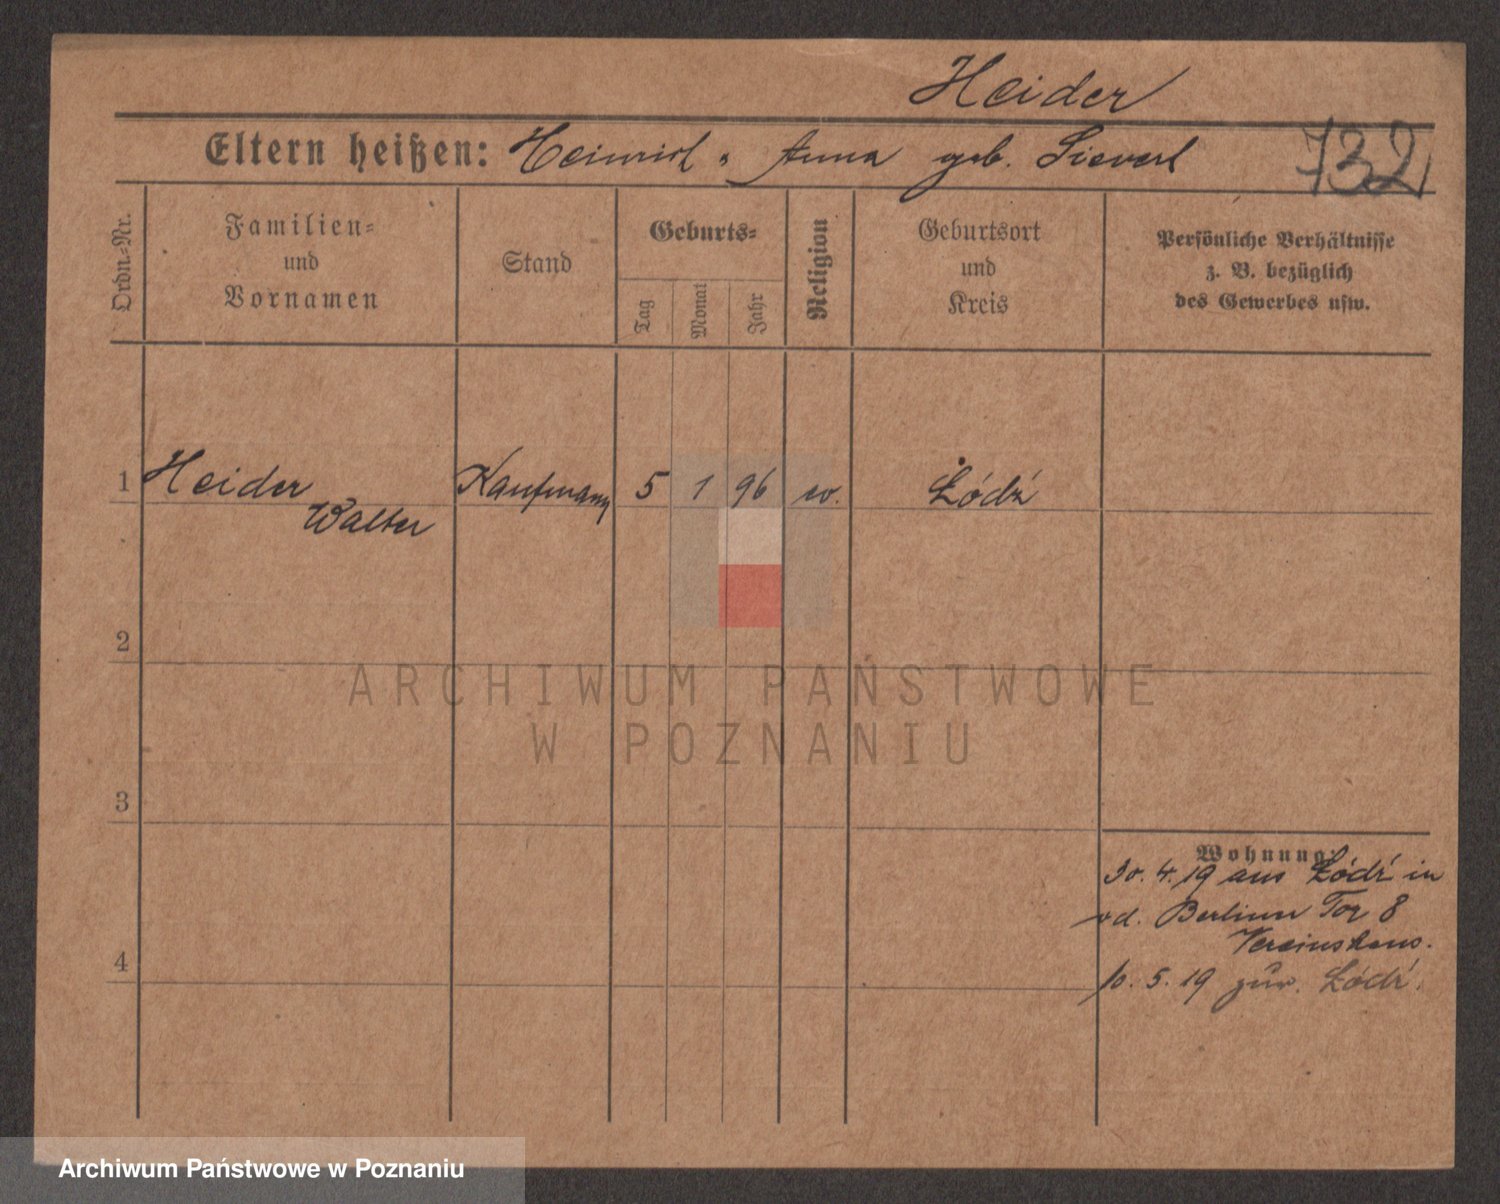 Heider
Eltern heißen: Heinrich u. Anna geb. Sievert
732
Ordn.-Nr.
Familien-
und
Vornamen
Stand
Geburts-
Tag
Monat
Jahr
Religion
Geburtsort
und
Kreis
Persönliche Verhältnisse
z. B. bezüglich
des Gewerbes usw.
1 Heider Kaufmann 5 1 96 ev. Łódź
Walter
2
ARCHIWUM PAŃSTWOWE
W POZNANIU
3
Wohnung:
30. 4. 19 aus Łódź in
Berliner Tor 8
Vereinshaus.
4
10. 5. 19 zur. Łódź.
Archiwum Państwowe w Poznaniu